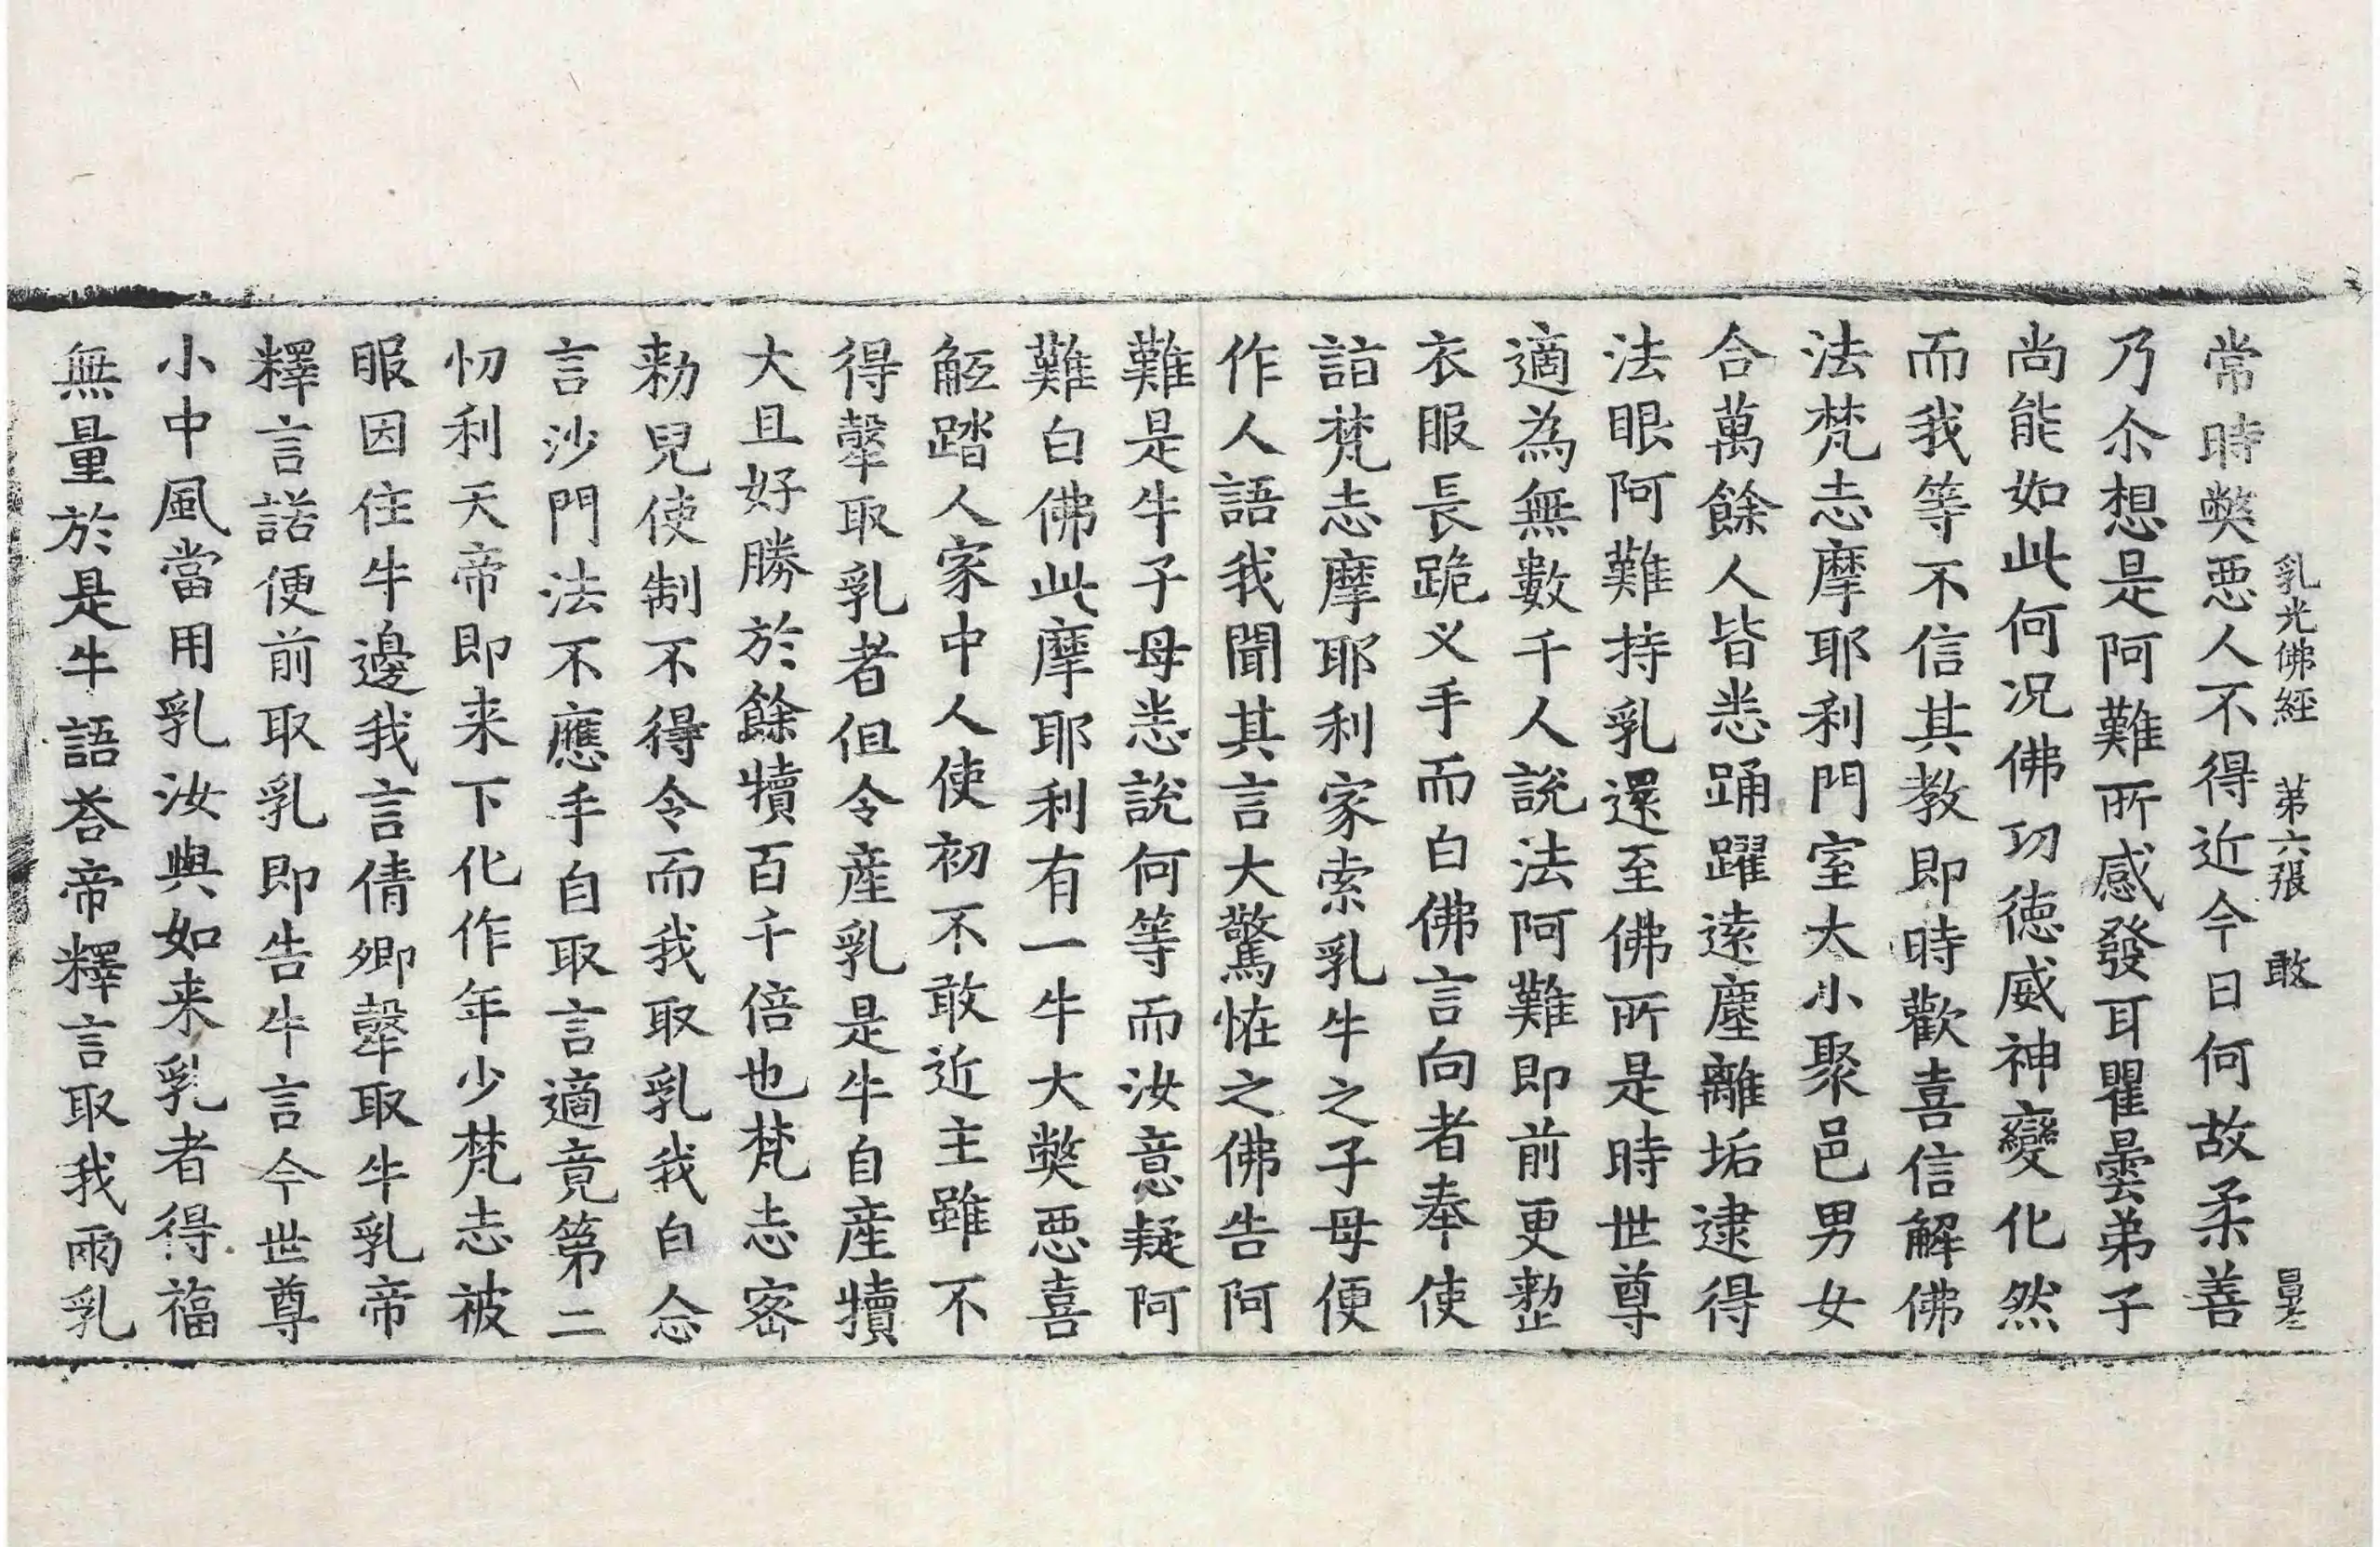 乳光佛經 苐六張 敢
常時獘惡人不得近今日何故柔善
乃尒想是阿難所感發耳瞿曇弟子
尚能如此何况佛功德威神變化然
而我等不信其教即時歡喜信解佛
法梵志摩耶利門室大小聚邑男女
合萬餘人皆悉踊躍遠塵離垢逮得
法眼阿難持乳還至佛所是時世尊
適為無數千人說法阿難即前更整
衣服長跪义手而白佛言向者奉使
詣梵志摩耶利家索乳牛之子母便
作人語我聞其言大驚恠之佛告阿
難是牛子母悉說何等而汝意疑阿
難白佛此摩耶利有一牛大獘惡喜
觝踏人家中人使初不敢近主雖不
得㲉取乳者但令產乳是牛自產犢
大且好勝於餘犢百千倍也梵志密
勑兒使制不得令而我取乳我自念
言沙門法不應手自取言適竟第二
忉利天帝即来下化作年少梵志被
服因住牛邊我言倩卿㲉取牛乳帝
釋言諾便前取乳即告牛言今世尊
小中風當用乳汝與如来乳者得福
無量於是牛語荅帝釋言取我兩乳